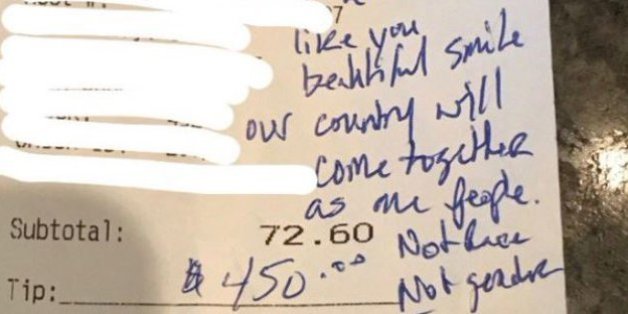 7
like you
beautiful smile
our country will
come together
as one people.
Subtotal: 72.60 Not Race
Tip: $450.00 Not gender